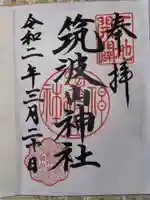 奉拝
筑波山神社
令和二年三月二十日